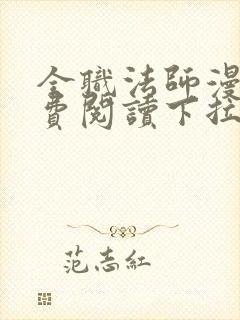 全職法師漫
費閱讀下拉
范志紅